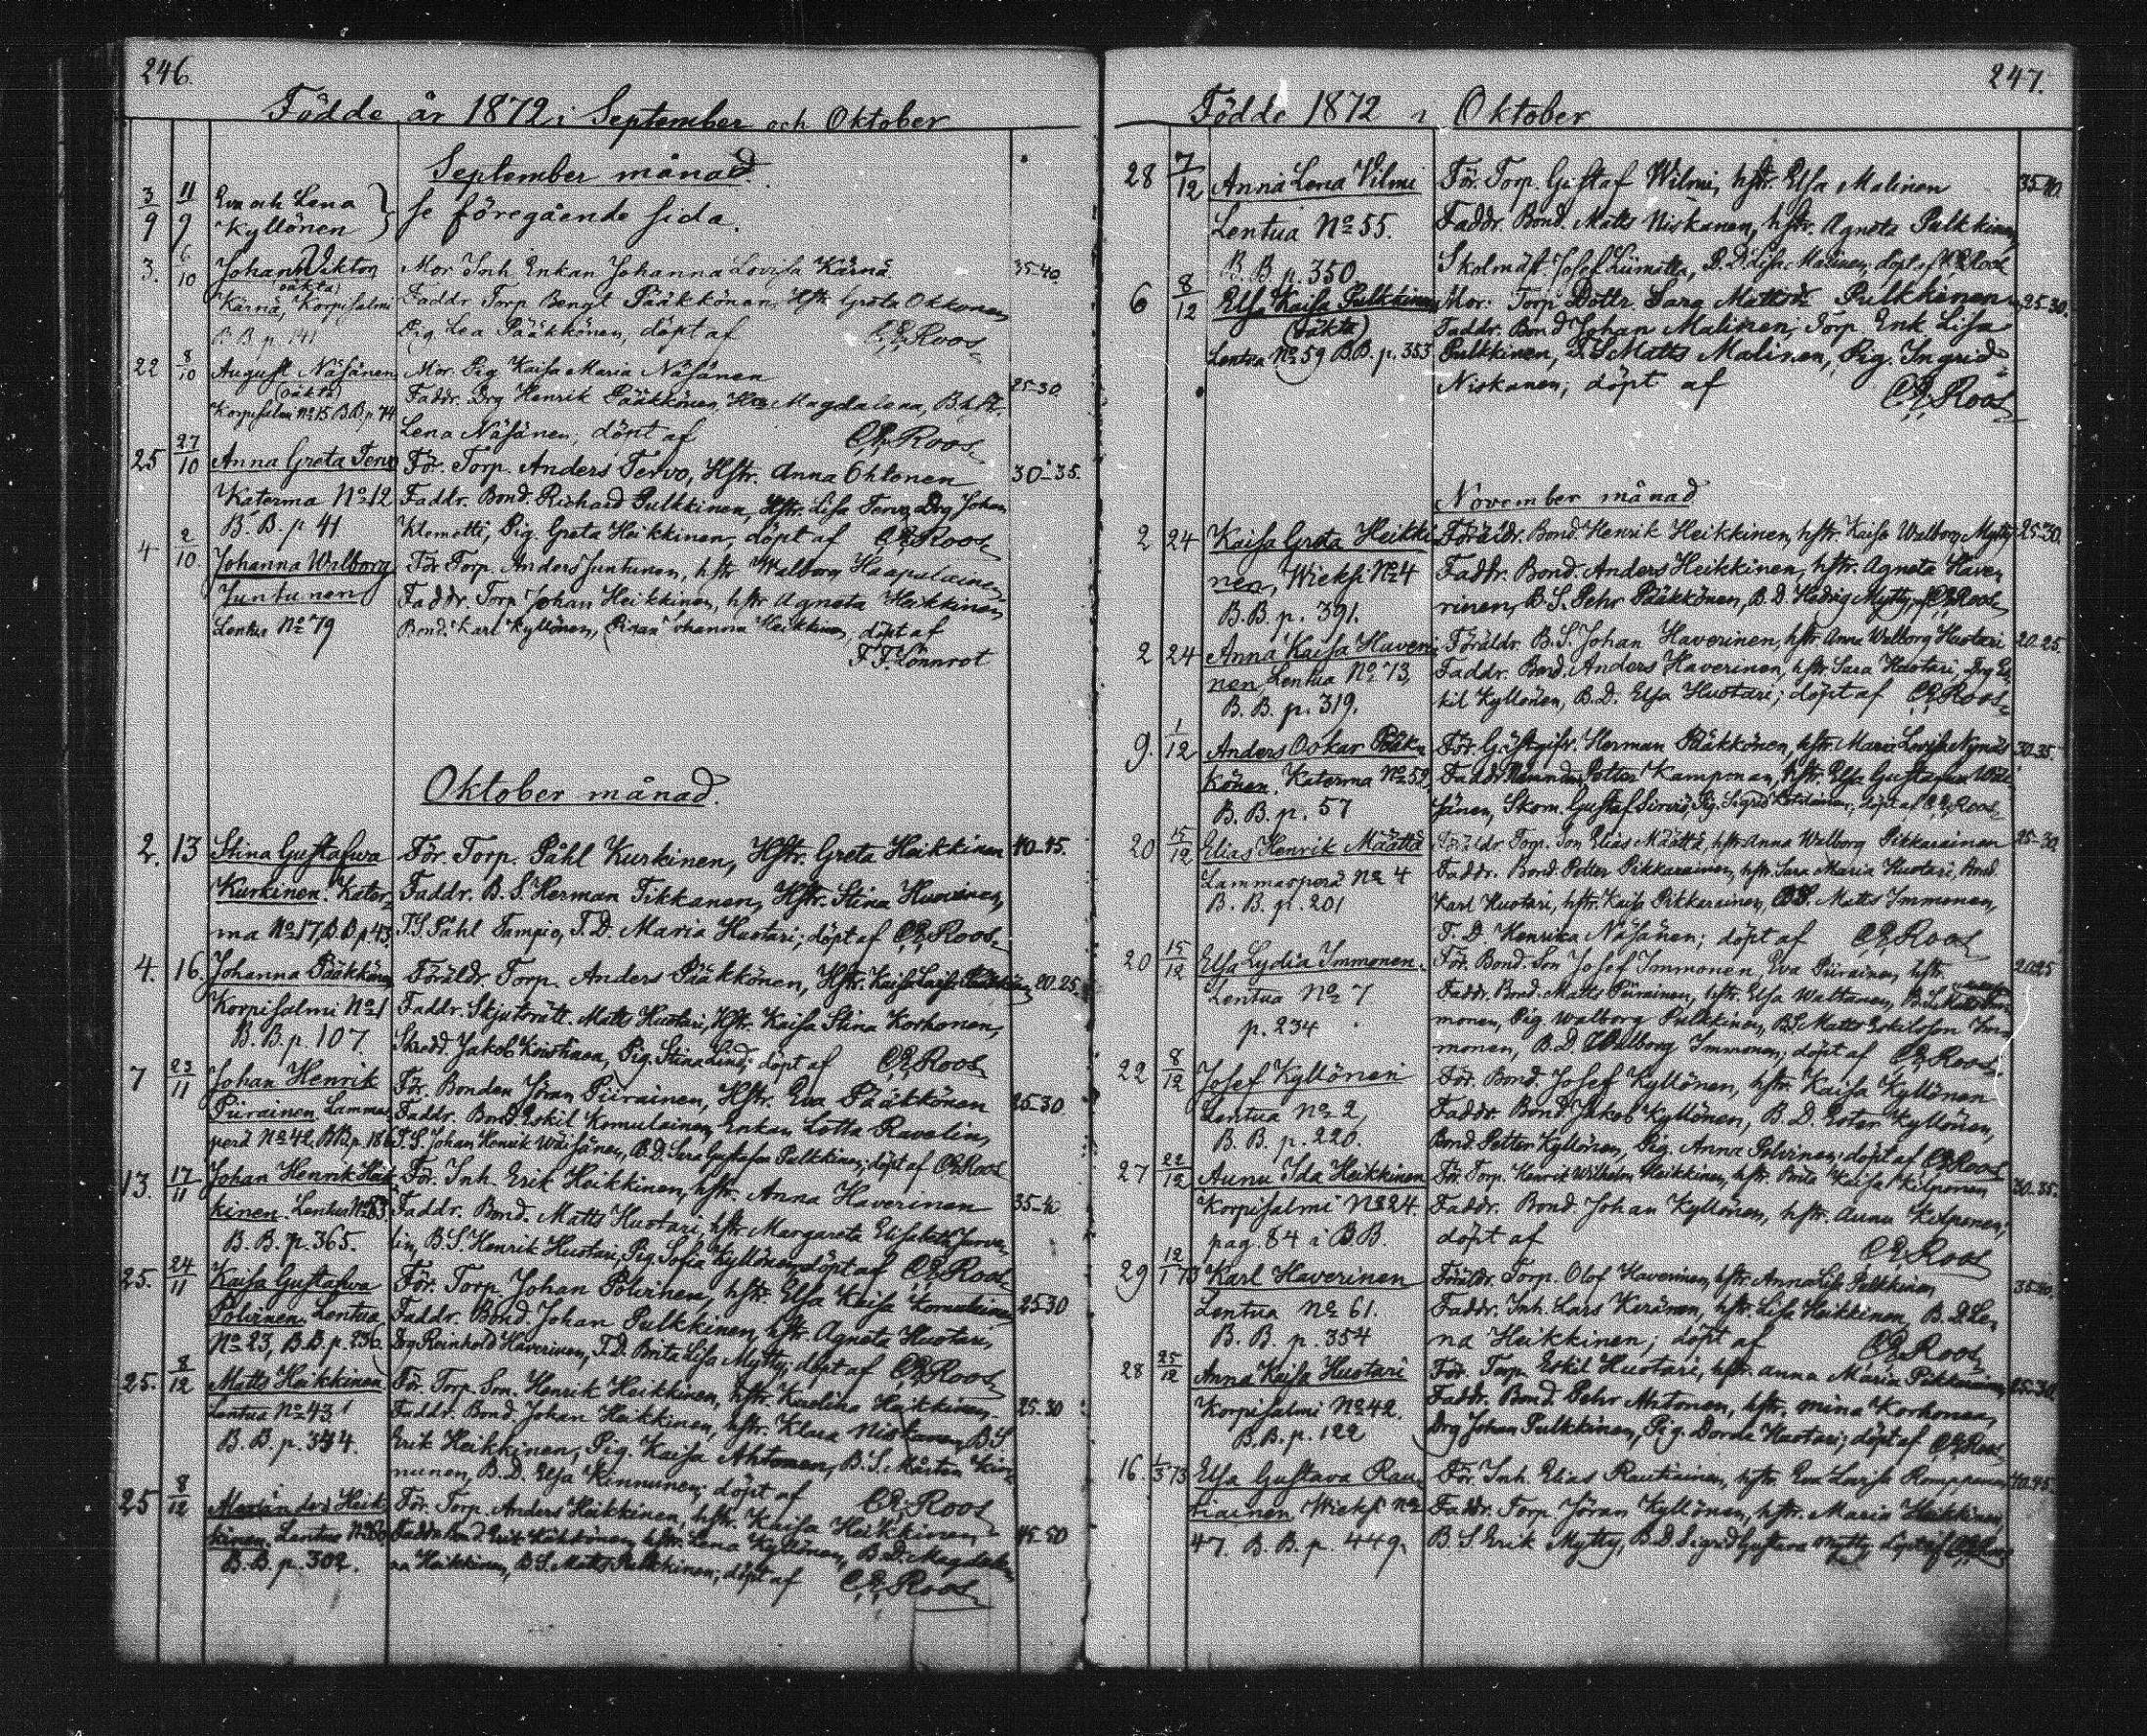 246.
Födde år 1872 i September och Oktober
September månad.
3/9 11/9 Eva och Lena
Kyllönen } se föregående sida.
3. 6/10 Johan Viktor Mor Inh. Enkan Johanna Lovisa Kärnä 35-40
(oäkta)
Kärnä, Korpisalmi Faddr Torp Bengt Pääkkönen, Hstr Greta Okkonen
B. B. p. 141 Pig. Lea Pääkkönen, döpt af C. E. Roos
22 8/10 August Näsänen Mor. Pig Kaisa Maria Näsänen 25-30
(oäkta) Faddr. Drg Henrik Pääkkönen, Magdalena,
Korpisalmi No 15 B.B. p. 74 Lena Näsänen; döpt af C. E. Roos
25 27/10 Anna Greta Tervo För. Torp. Anders Tervo, Hstr. Anna Ohtonen 30-35.
Katerma No 12 Faddr. Bond. Richard Pulkkinen, Hstr. Lisa Tervo, Drg Johan
B. B. p 41 Klemetti, Pig. Greta Heikkinen, döpt af C. E. Roos
4 2/10. Johanna Walborg För Torp. Anders Juntunen, hstr Walborg Haapalainen
Juntunen Faddr. Torp Johan Heikkinen, hstr Agneta Heikkinen
Lentua No 79 Bond. Karl Kyllönen, Heikkinen, döpt af
F. F. Lönnrot
Oktober månad.
2. 13 Stina Gustafwa För. Torp. Påhl Kurkinen, Hstr. Greta Heikkinen 40-45.
Kurkinen. Kater- Faddr. B. S. Herman Tikkanen, Hstr. Stina
ma No 17, B.B. p. 43. T.S. Påhl Tampio, T. D. Maria Huotari; döpt af C. E. Roos
4. 16. Johanna Pääkkönen Föräldr. Torp. Anders Pääkkönen, Hstr. Kaisa 20-25.
Korpisalmi No 1 Faddr. Skjutsrätt. Matts Huotari, Hstr. Kaisa Stina Korhonen,
B. B. p. 107. Skredd. Jakob Pig. Stina Lind; döpt af C. E. Roos
7 23/11 Johan Henrik För. Bonden Jöran Piirainen, Hstr. Eva Pääkkönen 25-30
Piirainen. Lammas- Faddr. Bond. Eskil Komulainen, Enkan Lotta Ravelin,
perä No 42, B.B. p. 186 T. S. Johan Henrik Wäisänen, B. D. Sara Gustafva Pulkkinen; döpt af C. E. Roos
13. 17/11 Johan Henrik Heik- För. Inh. Erik Heikkinen, hstr. Anna Haverinen 35-40
kinen. Lentua No 63. Faddr. Bond. Matts Huotari, hstr Margareta Elisabeth
B. B. p. 365. B. S. Henrik Huotari, Pig. Sofia Kyllönen, döpt af C. E. Roos
25. 24/11 Kaisa Gustafwa För. Torp. Johan Polvinen, hstr. Elsa Kaisa Komulainen 25-30
Polvinen. Lentua Faddr. Bond. Johan Pulkkinen, hstr. Agneta Huotari,
No 23, B.B. p. 236. Drg Reinhold Haverinen, T.D. Brita Lisa Mytty; döpt af C. E. Roos
25. 8/12 Matts Heikkinen För. Torp. Son. Henrik Heikkinen, hstr. Karolina Heikkinen 25-30
Lentua No 43 Faddr. Bond. Johan Heikkinen, hstr. Klara Niskanen, B.S
B. B. p. 344. Erik Heikkinen, Pig. Kaisa Ahtonen, B. S. Mårten Kin-
nunen, B. D. Elsa Kinnunen, döpt af C. E. Roos
25 8/12 Heik- För. Torp. Anders Heikkinen, hstr. Kaisa Heikkinen, 45-50
kinen. Lentua Faddr. Bond. Erik hstr. Lena Kyllönen, B. D. Magdale-
B. B. p. 302. na Heikkinen, B. S. Matts Pulkkinen; döpt af C. E. Roos
247.
Födde 1872 i Oktober
28 7/12 Anna Lena Vilmi För. Torp. Gustaf Wilmi, hstr. Elsa Malinen 35-40.
Lentua No 55. Faddr. Bond. Matts Niskanen, hstr. Agneta Pulkkinen,
B. B. p. 350. Skolmäst. Josef Liimatta, B. D. Lisa Malinen, döpt af C. E. Roos
6 8/12 Elsa Kaisa Pulkkinen Mor: Torp. Dottr. Sara Mattsdr Pulkkinen 25-30.
(oäkta) Faddr. Bond Johan Malinen, Torp. Enk Lisa
Lentua No 59 B.B. p. 353 Pulkkinen, T. S Matts Malinen, Pig. Ingrid
Niskanen; döpt af C. E. Roos
November månad
2 24 Kaisa Greta Heikki- Föräldr. Bond. Henrik Heikkinen, hstr. Kaisa Walborg Mytty 25-30.
nen, Wieksi No 4 Faddr. Bond. Anders Heikkinen, hstr. Agneta Have-
B. B. p. 391. rinen, B. S. Pehr Pääkkönen, B. D. Hedvig Mytty, C. E. Roos
2 24 Anna Kaisa Haveri- Föräldr. B. S. Johan Haverinen, hstr. Anna Walborg Huotari 20-25.
nen, Lentua No 13, Faddr. Bond. Anders Haverinen, hstr. Sara Huotari, Drg Es-
B. B. p. 319. kil Kyllönen, B. D. Elsa Huotari; döpt af C. E. Roos
9. 1/12 Anders Oskar Pääk- För. Gästgifv. Herman Pääkkönen, hstr. Maria Lovisa 30-35.
könen. Katerma No 59, Faddr. Petter Kamponan, hstr. Elsa Gustafva Wäi-
B. B. p. 57 sänen, Skom. Gustaf Pig. Sigrid döpt af C. E. Roos
20 15/12 Elias Henrik Määttä Föräldr Torp. Son Elias Määttä, hstr Anna Walborg Pikkarainen 25-30
Lammasperä No 4 Faddr. Bond. Petter Pikkarainen, hstr. Sara Maria Huotari, Bond.
B. B. p. 201 Karl Huotari, hstr. Kaisa Pikkarainen, B.S. Matts Immonen,
T. D Henrika Näsänen; döpt af C. E. Roos
20 15/12 Elsa Lydia Immonen. För. Bond. Son Josef Immonen, Eva Piirainen, hstr. 20-25
Lentua No 7 Faddr. Bond. Matts Piirainen, hstr. Elsa Waltanen, B. S. Im-
p. 234 monen, Pig Walborg Pulkkinen, B.S. Matts Eskilsson Im-
monen, B. D. Walborg Immonen; döpt af C. E. Roos
22 8/12 Josef Kyllönen För. Bond. Josef Kyllönen, hstr. Kaisa Kyllönen
Lentua No 2, Faddr. Bond. Jakob Kyllönen, B. D. Ester Kyllönen,
B. B. p. 220. Bond. Petter Kyllönen, Pig. Anna Polvinen; döpt af C. E. Roos
27 22/12 Aunu Ida Heikkinen För. Torp. Henrik Wilhelm Heikkinen, hstr. Brita Kaisa Kilponen 30-35.
Korpisalmi No 24. Faddr. Bond Johan Kyllönen, hstr. Aunu Kilponen;
pag. 84 i BB. döpt af C. E. Roos
29 12/1 73 Karl Haverinen Föräldr. Torp. Olof Haverinen, hstr. Anna Lisa Pulkkinen 35-40.
Lentua No 61. Faddr. Inh. Lars Keränen, hstr. Lisa Heikkinen, B. D. Le-
B. B. p. 354 na Heikkinen; döpt af C. E. Roos
28 25/12 Anna Kaisa Huotari För. Torp. Eskil Huotari, hstr. Anna Maria Pikkarainen 25-30
Korpisalmi No 42. Faddr. Bond. Pehr Ahtonen, hstr. Mina Korhonen,
B. B. p. 122 Drg Johan Pulkkinen, Pig. Dordea Huotari; döpt af C. E. Roos
16. 1/3 73 Elsa Gustava Rau- För. Inh. Elias Rautiainen, hstr. Eva Lovisa 40-45
tiainen Wieksi No Faddr. Torp. Jöran Kyllönen, hstr. Maria Heikkinen,
47. B. B. p. 449. B. S Erik Mytty, B. D. Sigrid Gustava Mytty, döpt af C. E. Roos